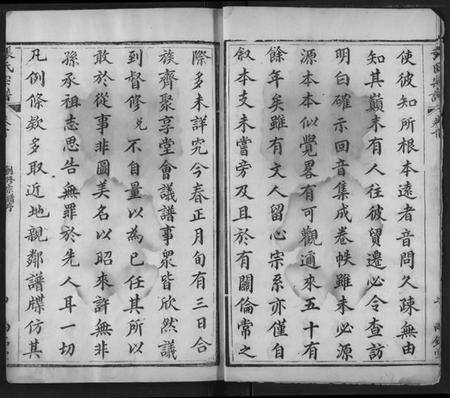 使彼知所根本遠者音問久疎無由
知其巔末有人往彼貿遷必令查訪
明白確示回音集成卷帙雖未必源
源本本似覺畧有可觀通來五十有
餘年矣雖有文人留心宗系亦僅自
叙本支未嘗旁及且於有關倫常之
際多未詳究今春正月旬有三日合
族齊聚享堂會議譜事眾皆欣然議
到督修兊不自量以為己任其所以
敢於從事非圖美名以昭來許無非
孫承祖志思告無罪於先人耳一切
凡例條欵多取近地親鄰譜牒仿其